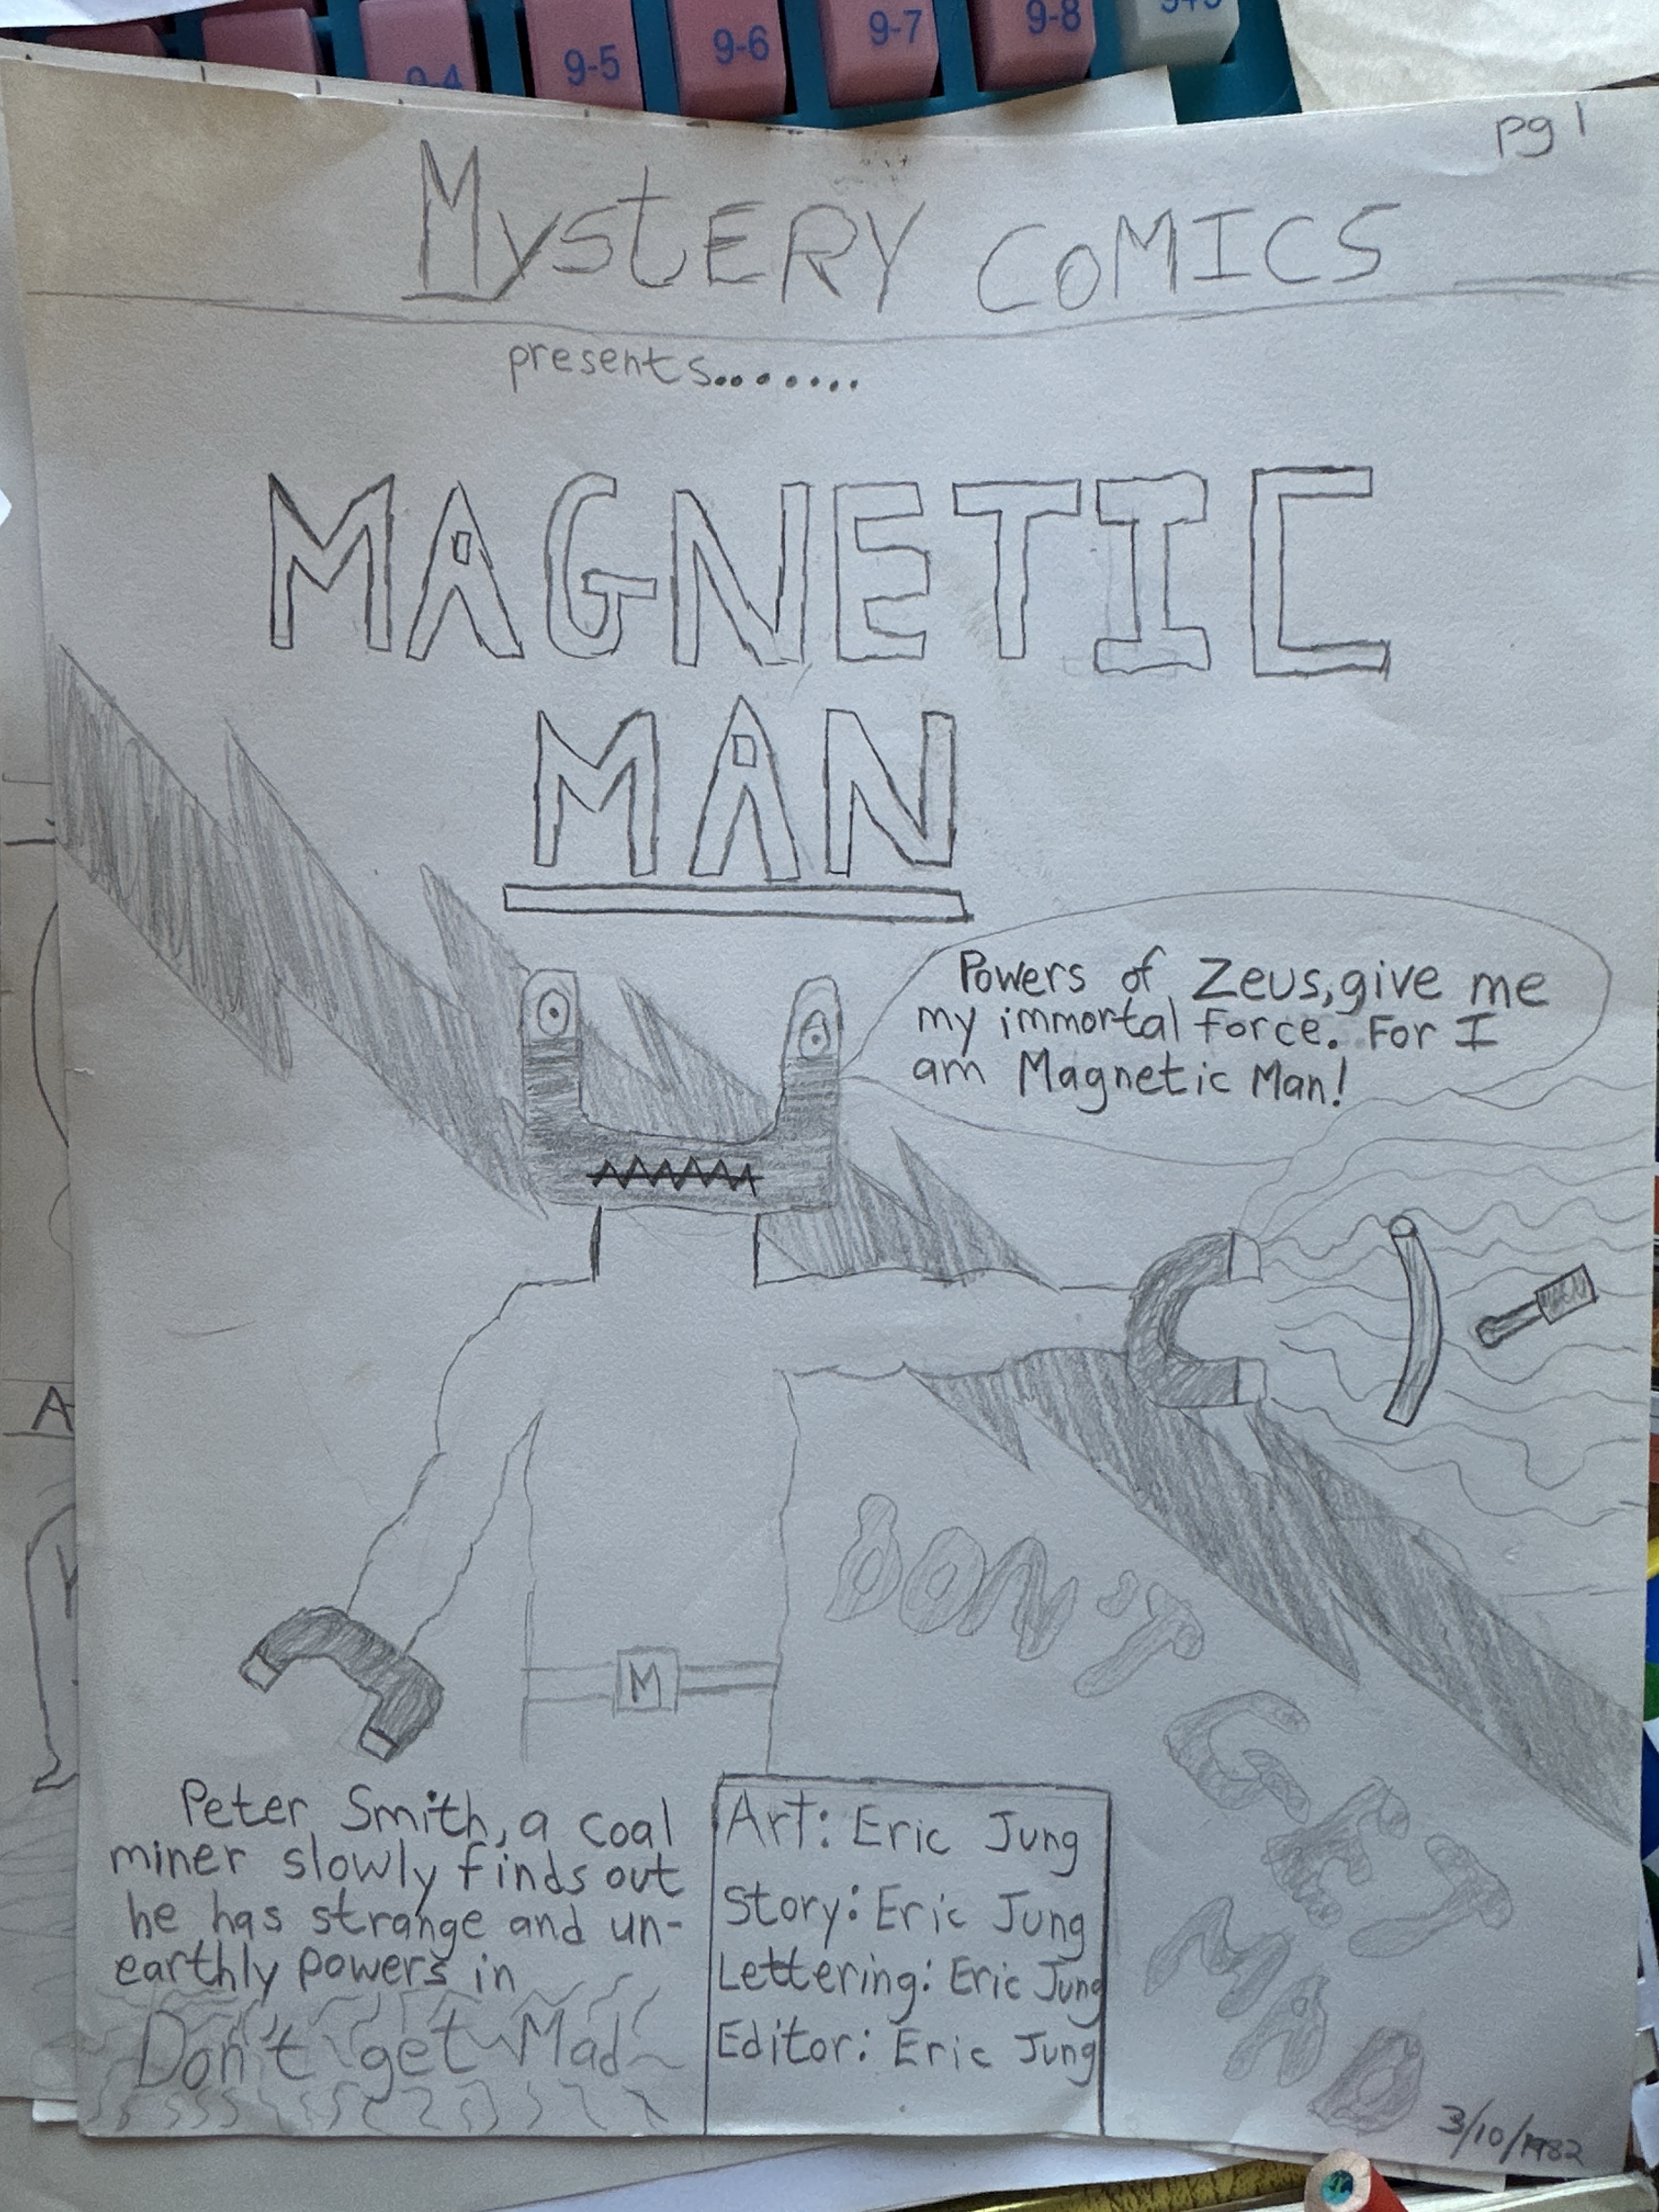 9-4
9-5
9-6
9-7
9-8
pg 1
MyStERY COMICS
presents........
MAGNETIC
MAN
Powers of Zeus, give me
my immortal force. For I
am Magnetic Man!
M
DON'T
GET
MAD
Peter Smith, a coal
miner slowly finds out
he has strange and un-
earthly powers in
Don't get Mad
Art: Eric Jung
Story: Eric Jung
Lettering: Eric Jung
Editor: Eric Jung
3/10/1982
A